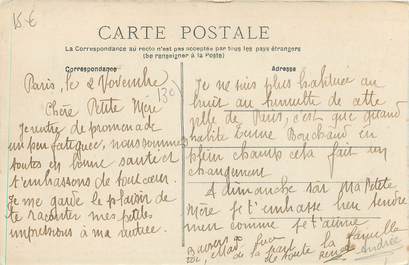 15 €
CARTE POSTALE
La Correspondance au recto n'est pas acceptée par tous les pays étrangers
(Se renseigner à la Poste)
Correspondance
Adresse
Paris, le 2 Novembre
Chère Petite Mère
Je rentre de promenade
un peu fatiguée, nous sommes
toutes en bonne santé et
t'embrassons de tout cœur.
Je me garde le plaisir de
te raconter mes petites
impressions à ma rentrée.
Je ne suis plus habituée au
bruit au tumulte de cette
ville de Paris, c'est que quand
habite Bouchaud en
plein champ cela fait un
changement
A dimanche soir Ma Petite
Mère je t'embrasse bien tendre
ment comme je t'aime
de la part
de toute la famille
Andrée